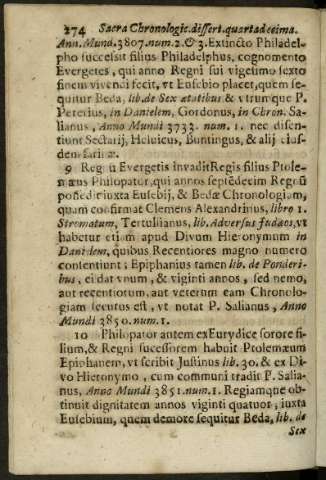 274 Sacra Chronologic.dissert.quartadecima.
Ann. Mund. 3807. num. 2. & 3. Extincto Philadel-
pho successit filius Philadelphus, cognomento
Evergetes, qui anno Regni sui vigesimo sexto
finem vivendi fecit, vt Eusebio placet, quem se-
quitur Beda, lib. de Sex ætatibus & vtrumque P.
Pererius, in Danielem, Gordonus, in Chron. Sa-
lianus, Anno Mundi 3733. num. 1. nec dissen-
tiunt Sectarij, Heluicus, Buntingus, & alij eius-
dem farinæ.
9 Regnũ Evergetis invadit Regis filius Ptole-
mæus Philopator, qui annos septẽdecim Regnũ
possedit iuxta Eusebij, & Bedæ Chronologiam,
quam confirmat Clemens Alexandrinus, libro 1.
Stromatum, Tertullianus, lib. Adversus Judæos, vt
habetur etiam apud Divum Hieronymum in
Danielem, quibus Recentiores magno numero
consentiunt: Epiphanius tamen lib. de Ponderi-
bus, ei dat vnum, & viginti annos, sed nemo,
aut recentiorum, aut veterum eam Chronolo-
giam secutus est, vt notat P. Salianus, Anno
Mundi 3830. num. 1.
10 Philopator autem ex Eurydice sorore fi-
lium, & Regni successorem habuit Ptolemæum
Epiphanem, vt scribit Justinus lib. 30. & ex Di-
vo Hieronymo, cum communi tradit P. Salia-
nus, Anno Mundi 3851. num. 1. Regiamque ob-
tinuit dignitatem annos viginti quatuor, iuxta
Eusebium, quem demore sequitur Beda, lib. de
Sex